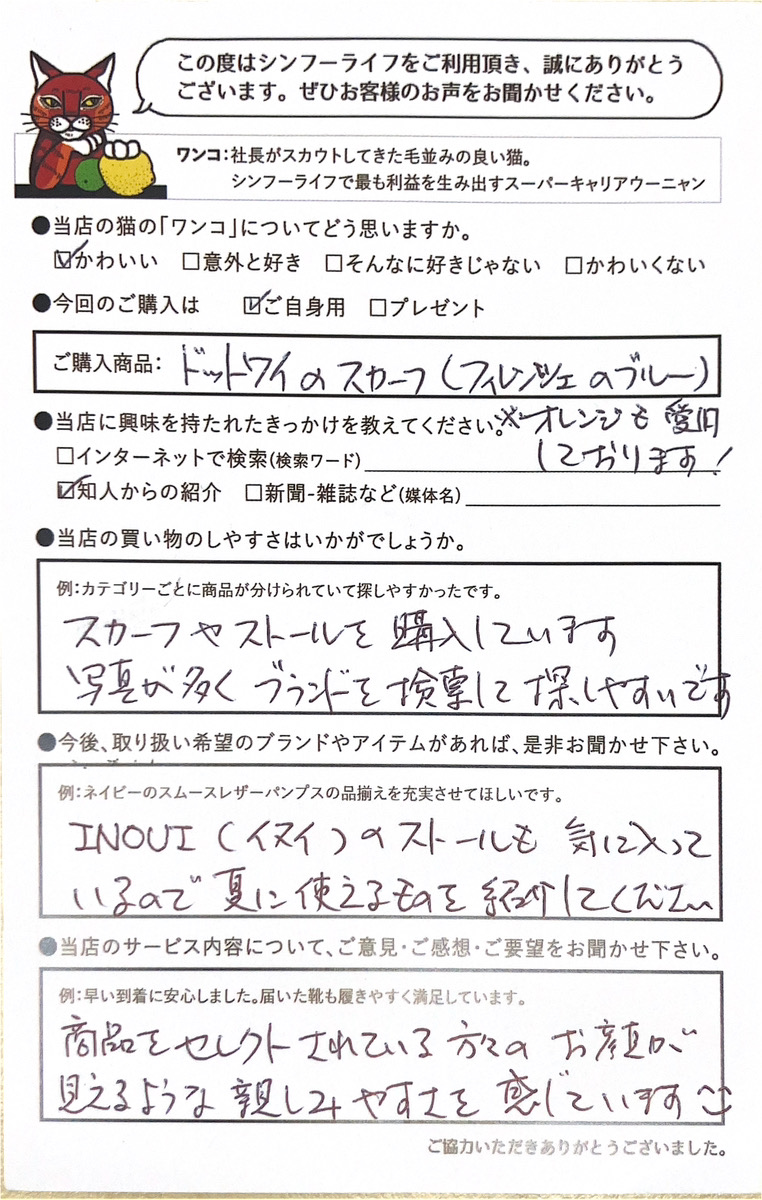 この度はシンフーライフをご利用頂き、誠にありがとう
ございます。ぜひお客様のお声をお聞かせください。
ワンコ：社長がスカウトしてきた毛並みの良い猫。
シンフーライフで最も利益を生み出すスーパーキャリアウーニャン
●当店の猫の「ワンコ」についてどう思いますか。
☑かわいい □意外と好き □そんなに好きじゃない □かわいくない
●今回のご購入は ☑ご自身用 □プレゼント
ご購入商品： ドットワイのスカーフ（フィレンツェのブルー）
●当店に興味を持たれたきっかけを教えてください。
※オレンジも愛用
しております！
□インターネットで検索(検索ワード)
☑知人からの紹介 □新聞-雑誌など(媒体名)
●当店の買い物のしやすさはいかがでしょうか。
例：カテゴリーごとに商品が分けられていて探しやすかったです。
スカーフやストールを購入しています
写真が多くブランドを検索して探しやすいです
●今後、取り扱い希望のブランドやアイテムがあれば、是非お聞かせ下さい。
例：ネイビーのスムースレザーパンプスの品揃えを充実させてほしいです。
INOUI（イヌイ）のストールも気に入って
いるので夏に使えるものを紹介してください
●当店のサービス内容について、ご意見・ご感想・ご要望をお聞かせ下さい。
例：早い到着に安心しました。届いた靴も履きやすく満足しています。
商品をセレクトされている方々のお顔が
見えるような親しみやすさを感じています
ご協力いただきありがとうございました。